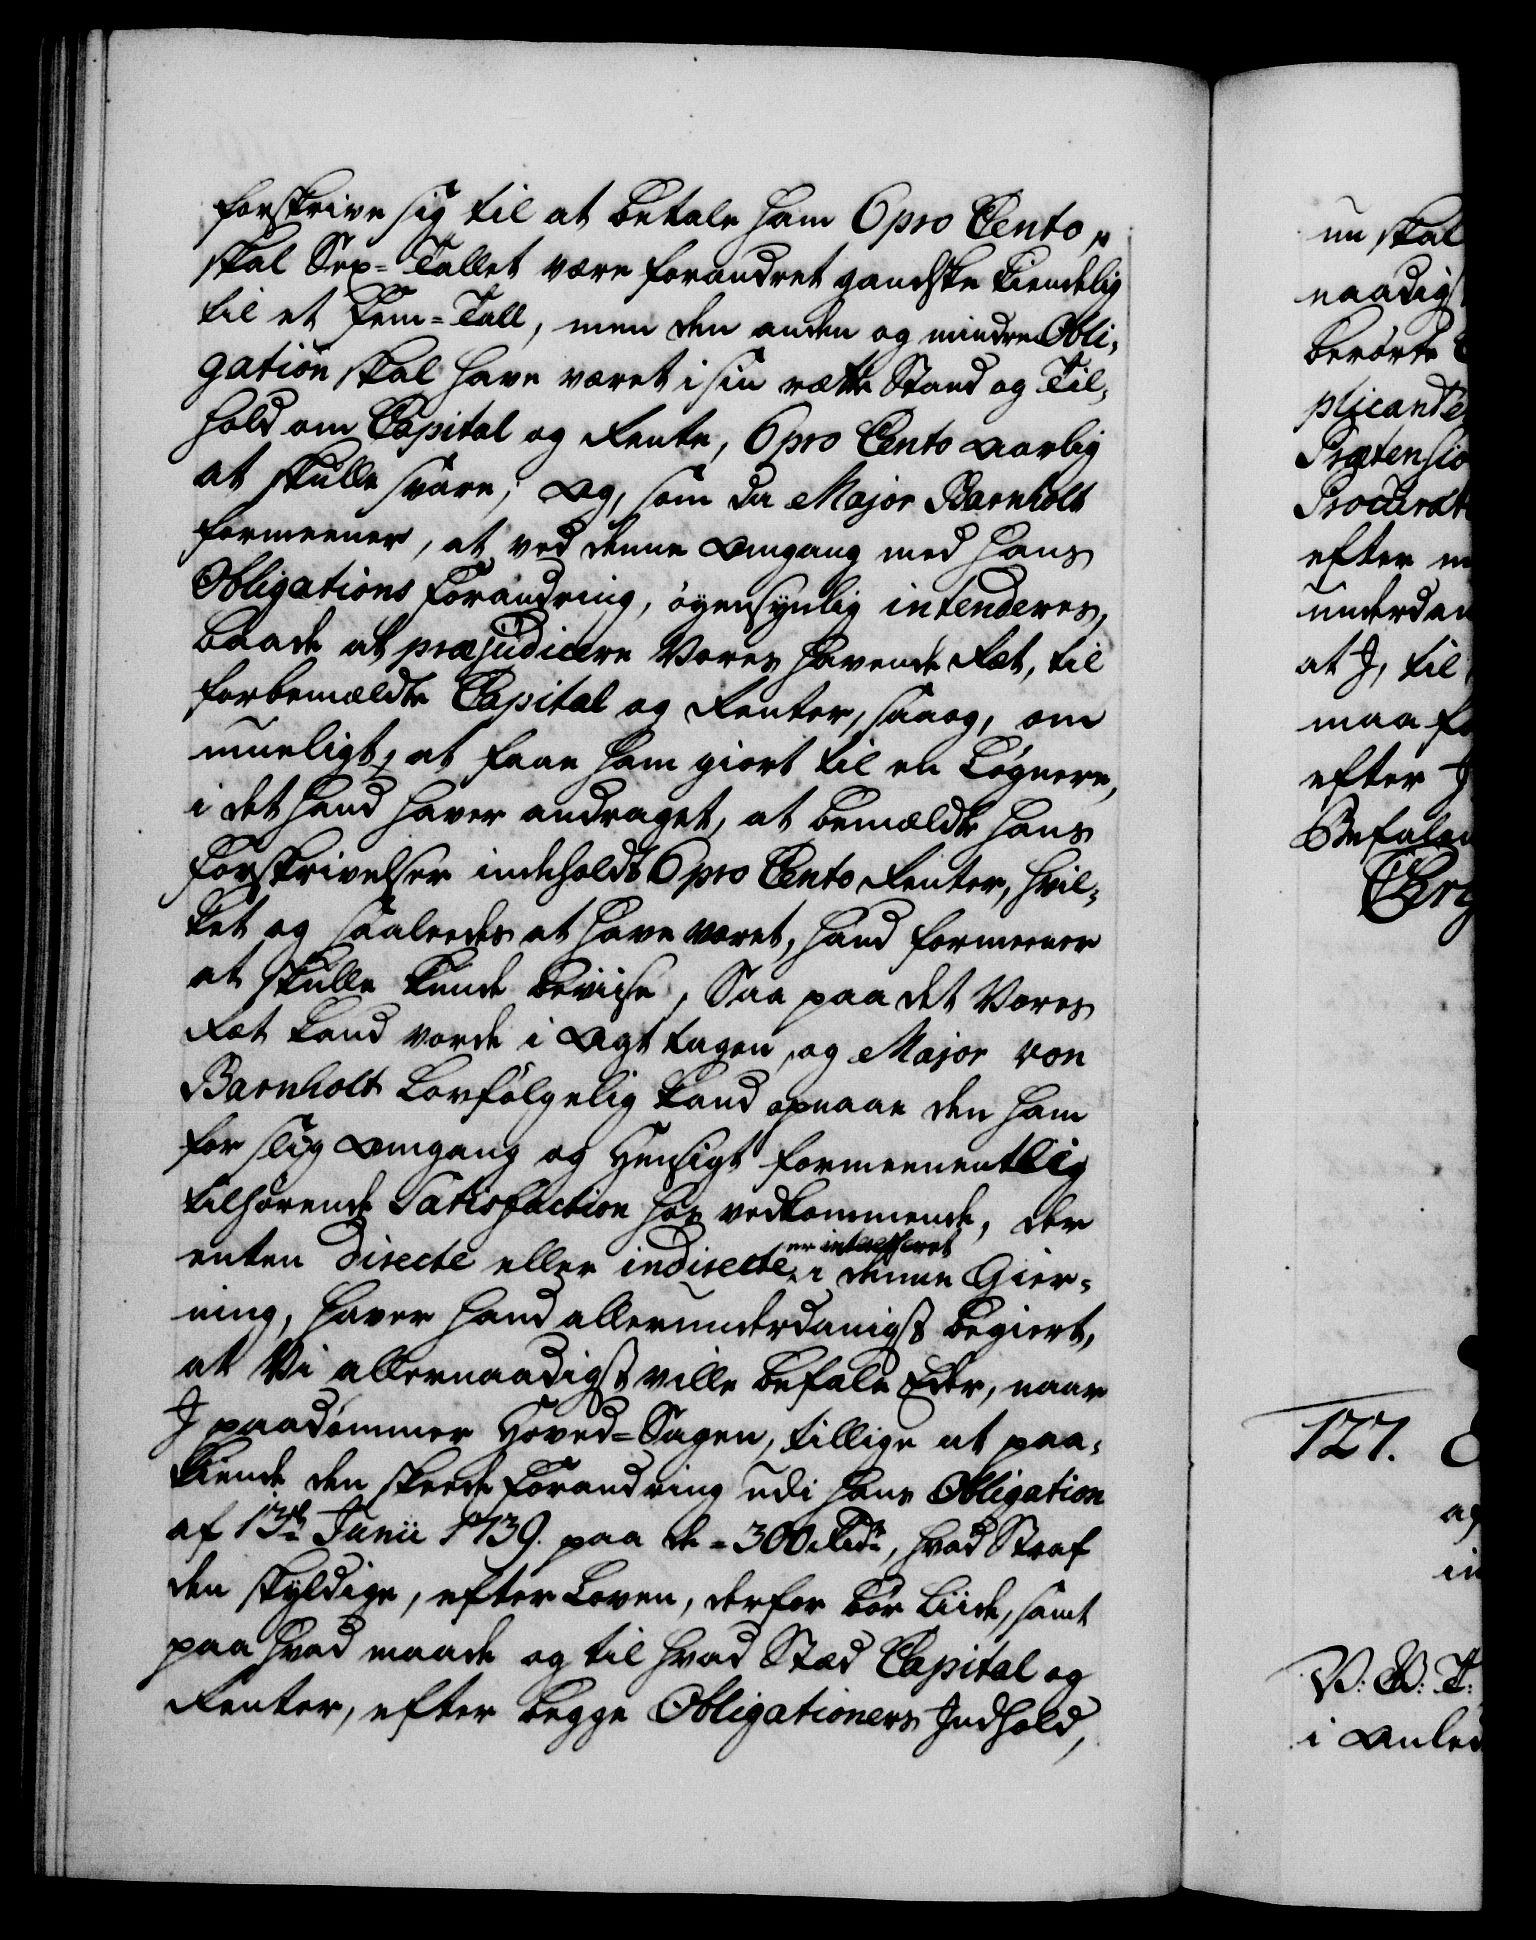 forskrive sig til at betale ham 6 pro Cento,
skal Sex-Tallet være forandret gandske kiendelig
til et Fem-Tall, men den anden og mindre Obli-
gation skal have været i sin rætte Stand og Til-
hold om Capital og Rente, 6 pro Cento aarlig
at skulle svare; Og, som da Major Barnholt
formeener, at ved denne Omgang med hans
Obligations Forandring, øyensynlig intenderes,
baade at præjudicere Vores havende Ræt, til
forbemældte Capital og Renter, saaog, om
mueligt, at faae ham giort til en Løgnere,
i det hand haver andraget, at bemældte hans
Forskrivelser indeholdt 6 pro Cento Renter, hvil-
ket og saaleedes at have været, hand formeener
at skulle kunde beviise, Saa paa det Vores
Ræt kand vorde i Agt tagen, og Major von
Barnholt Lovfølgelig kand opnaae den ham
for slig Omgang og Hensigt formeenentlig
tilhørende Satisfaction hos vedkommende, der
enten directe eller indirecte er interesseret i denne Gier-
ning, haver hand allerunderdanigst begiert,
at Vi allernaadigst ville befale Eder, naar
I paadømmer Hoved-Sagen, tillige at paa-
kiende den skeede Forandring udi hans Obligation
af 13de Junii 1739. paa de 300 Rdr, hvad Straf
den skyldige, efter Loven, derfor bør liide, samt
paa hvad maade og til hvad Stæd Capital og
Renter, efter begge Obligationers Indhold,
nu skal
naadigst
berørte
plicante
Prætensio
Procurat
efter
underdan
at I, til
maa
efter
Befale
127.
V. G. T.
i Anled